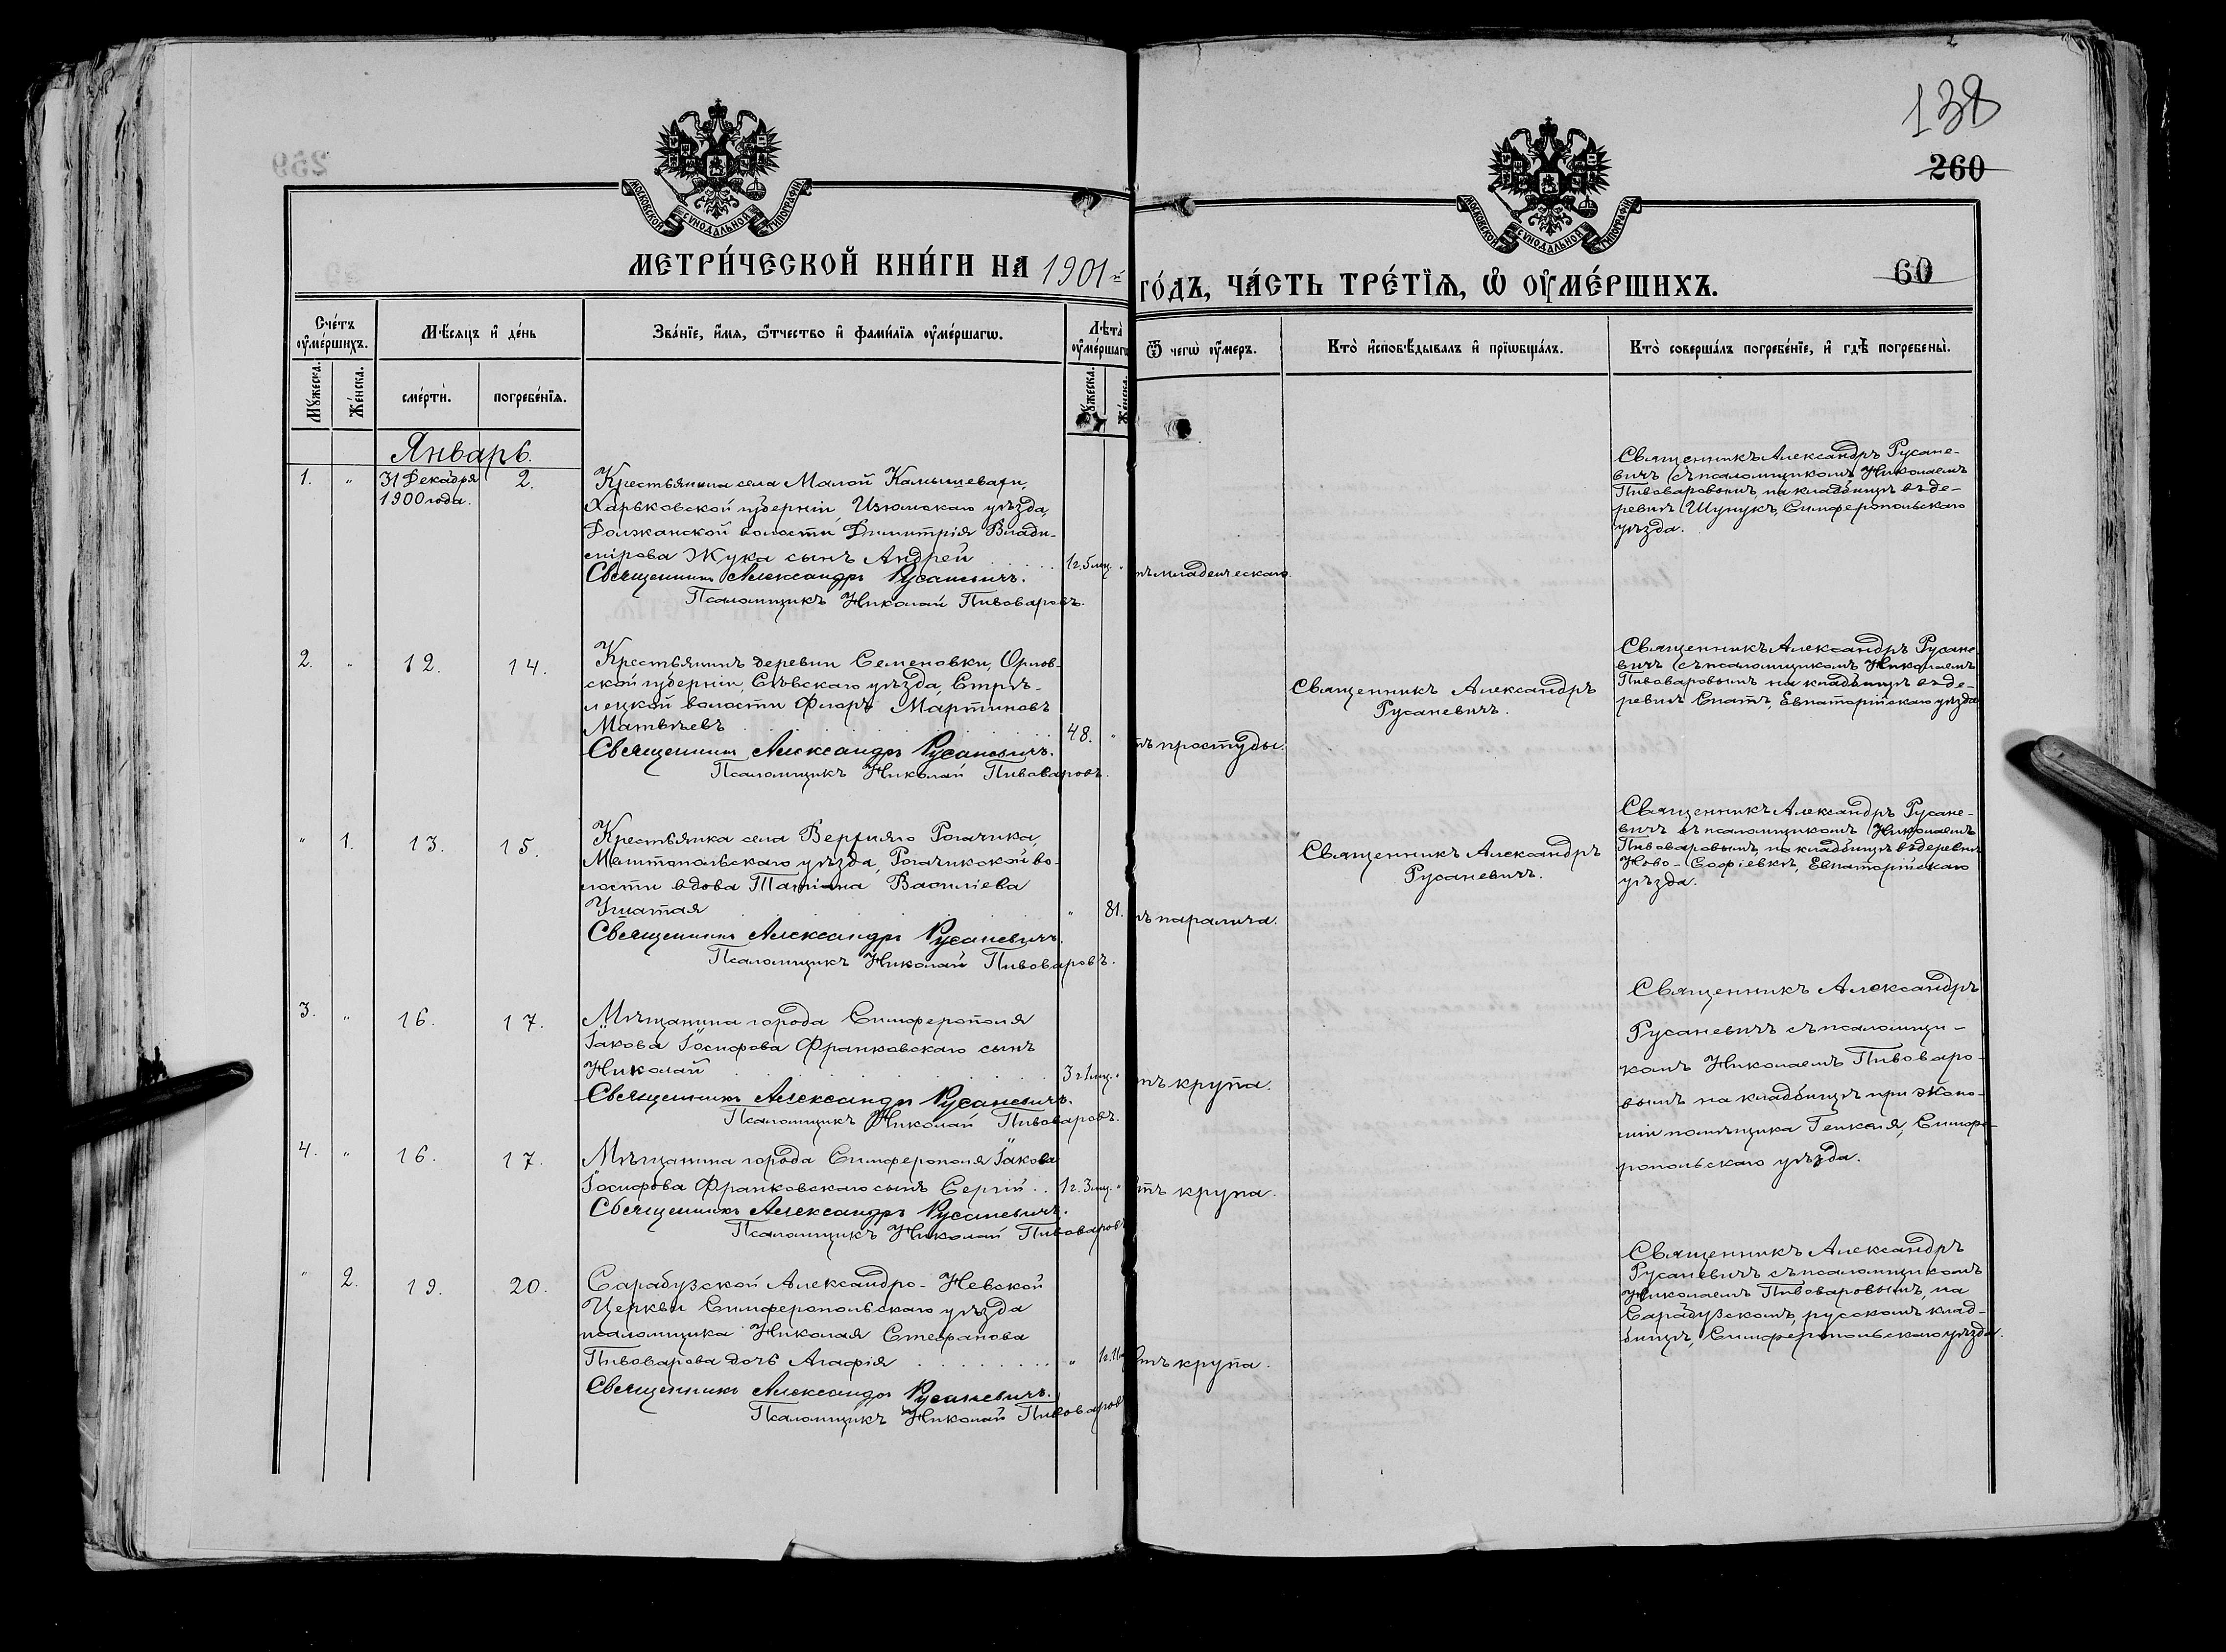 138
260
60
МОСКОВСКОЙ СѴНОДАЛЬНОЙ ТИПОГРАФІИ
МОСКОВСКОЙ СѴНОДАЛЬНОЙ ТИПОГРАФІИ
МЕТРИ́ЧЕСКОЙ КНИ́ГИ НА 1901-й
ГО́ДЪ, ЧА́СТЬ ТРЕ́ТЇѦ, Ѡ҆ ОУ҆МЕ́РШИХЪ.
Сче́тъ оу҆ме́ршихъ.
Мѣ́сяцъ и҆ де́нь
Зва́нїе, и҆́мя, ѻ҆́тчество и҆ фами́лїя оу҆ме́ршагѡ.
Лѣ́та̀ оу҆ме́ршагѡ
Ѿ чегѡ̀ оу҆́меръ.
Кто̀ и҆сповѣ́дывалъ и҆ прїѡбща́лъ.
Кто̀ соверша́лъ погребе́нїе, и҆ гдѣ̀ погребены̀.
Му́жеска. Же́нска. сме́рти. погребе́нїя. Му́жеска. Же́нска.
Январь.
1. " 31 Декабря 2.
1900 года.
Крестьянина села Малой Камышевахи,
Харьковской губерніи, Изюмскаго уѣзда,
Должанской волости Димитрія Влади-
мірова Жука сынъ Андрей 1г. 5 мц. "
отъ младенческаго.
Священникъ Александръ Русаневичъ.
Псаломщикъ Николай Пивоваровъ.
Священникъ Александръ Русане-
вичъ съ псаломщикомъ Николаемъ
Пивоваровымъ, на кладбищѣ въ де-
ревнѣ Шунукъ, Симферопольскаго
уѣзда.
2. " 12. 14.
Крестьянинъ деревни Семеновки, Орлов-
ской губерніи, Сѣвскаго уѣзда, Стрѣ-
лецкой волости Флоръ Мартиновъ
Матвѣевъ 48. "
отъ простуды.
Священникъ Александръ Русаневичъ.
Псаломщикъ Николай Пивоваровъ.
Священникъ Александръ
Русаневичъ.
Священникъ Александръ Русане-
вичъ съ псаломщикомъ Николаемъ
Пивоваровымъ на кладбищѣ въ де-
ревнѣ Спатъ, Евпаторійскаго уѣзда.
" 1. 13. 15.
Крестьянка села Верхняго Рогачика,
Мелитопольскаго уѣзда, Рогачикской во-
лости вдова Татіана Василіева
" 81.
отъ паралича.
Священникъ Александръ Русаневичъ.
Псаломщикъ Николай Пивоваровъ.
Священникъ Александръ
Русаневичъ.
Священникъ Александръ Русане-
вичъ съ псаломщикомъ Николаемъ
Пивоваровымъ, на кладбищѣ въ деревнѣ
Ново-Софіевкѣ, Евпаторійскаго
уѣзда.
3. " 16. 17.
Мѣщанина города Симферополя
Іакова Іосифова Франковскаго сынъ
Николай 3 г 1 мц. "
отъ крупа.
Священникъ Александръ Русаневичъ.
Псаломщикъ Николай Пивоваровъ.
Священникъ Александръ
Русаневичъ съ псаломщи-
комъ Николаемъ Пивоваро-
вымъ на кладбищѣ при эконо-
міи помѣщика Генкеля, Симфе-
ропольскаго уѣзда.
4. " 16. 17.
Мѣщанина города Симферополя Іакова
Іосифова Франковскаго сынъ Сергій 1 г. 3 мц. "
отъ крупа.
Священникъ Александръ Русаневичъ.
Псаломщикъ Николай Пивоваровъ
" 2. 19. 20.
Сарабузской Александро-Невской
Церкви Симферопольскаго уѣзда
псаломщика Николая Стефанова
Пивоварова дочь Агафія " 1г. 11 мц
отъ крупа.
Священникъ Александръ Русаневичъ.
Псаломщикъ Николай Пивоваровъ
Священникъ Александръ
Русаневичъ съ псаломщикомъ
Николаемъ Пивоваровымъ, на
Сарабузскомъ, русскомъ клад-
бищѣ, Симферопольскаго уѣзда.